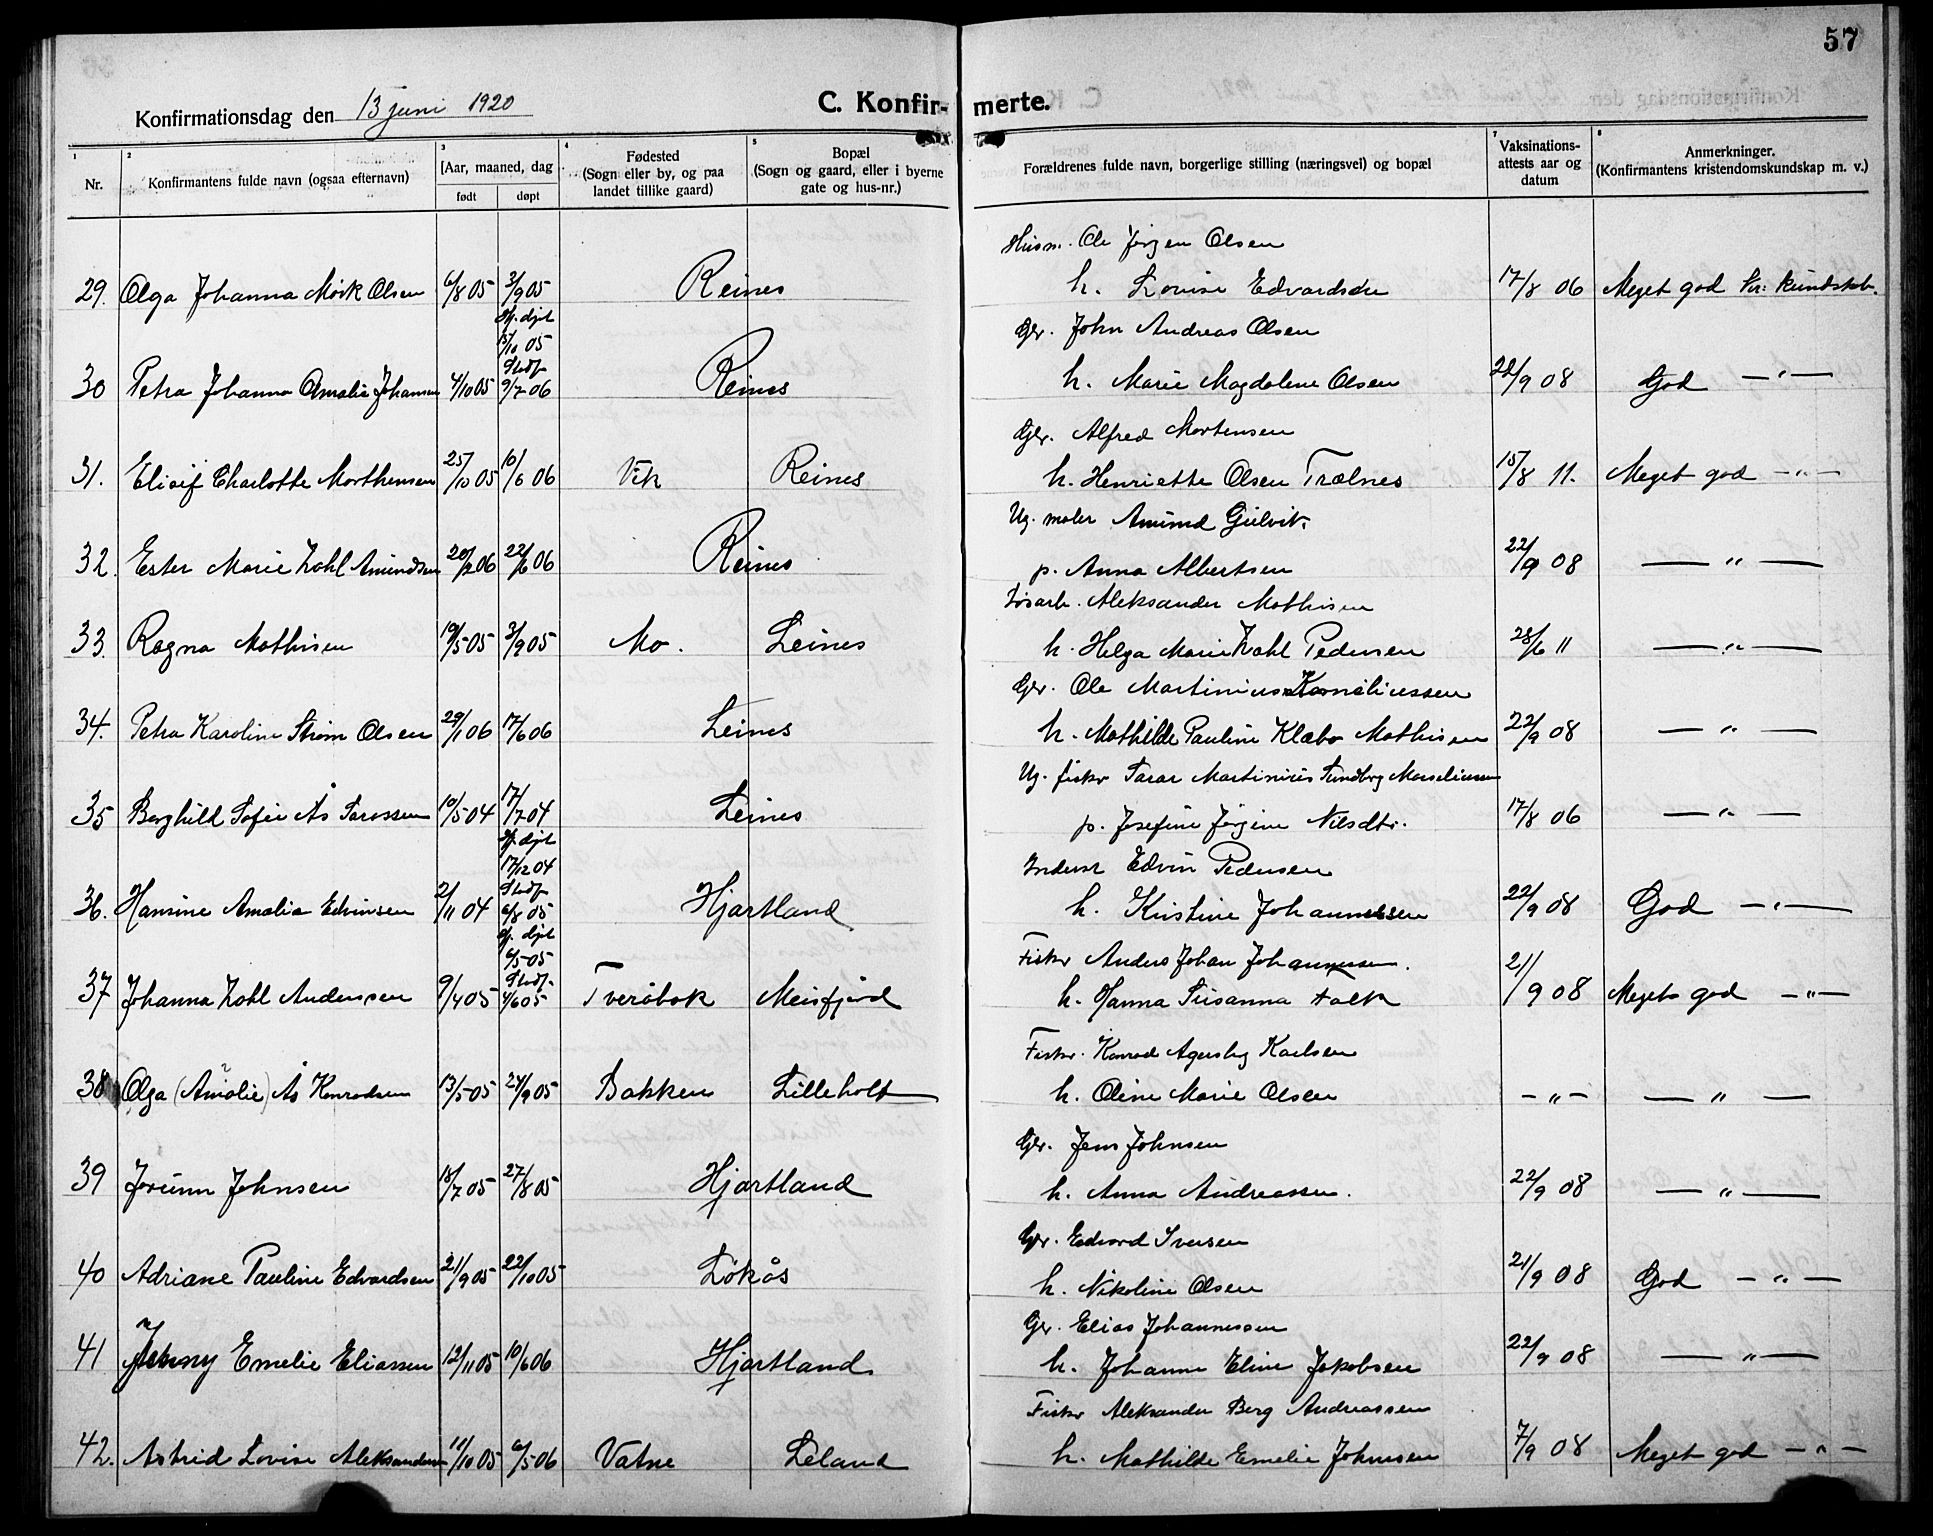 57
Konfirmationsdag den 13 juni 1920
C. Konfirmerte.
1 2 3 4 5 7 8
Nr.
Konfirmantens fulde navn (ogsaa efternavn)
[Aar, maaned, dag
født døpt
Fødested
(Sogn eller by, og paa
landet tillike gaard)
Bopæl
(Sogn og gaard, eller i byerne
gate og hus-nr.)
Forældrenes fulde navn, borgerlige stilling (næringsvei) og bopæl
Vaksinations-
attests aar og
datum
Anmerkninger.
(Konfirmantens kristendomskundskap m. v.)
Husm. Ole Jørgen Olsen
29. Olga Johanna Mørk Olsen 6/8 05 3/9 05 Reines h. Lovise Edvardsdtr 17/8 06 Meget god kr: kundskab.
hj. døpt
15/10 05
Gbr. John Andreas Olsen
Stadf.
30 Petra Johanna Amalie Johansen 4/10 05 9/7 06 Reines h. Marie Magdalene Olsen 22/9 08 God — " —
Gbr. Alfred Mortensen
31. Elisif Charlotte Morthensen 25/10 05 10/6 06 Vik Reines h. Henriette Olsen Trælnes 15/8 11. Meget god - " -
Ug. maler Amund Gulvik.
32. Ester Marie Zahl Amundsen 20/2 06 22/6 06 Reines p. Anna Albertsen 22/9 08 — " —
Løsarb. Aleksander Mathisen
33. Ragna Mathisen 19/5 05 3/9 05 Mo. Leines h. Helga Marie Zahl Pedersen 28/6 11 — " —
Gbr. Ole Martinius Korneliussen
34. Petra Karoline Strøm Olsen 29/1 06 17/6 06 Leines h. Mathilde Pauline Klæbo Mathisen 22/9 08 — " —
Ug. fisker Saras Martinius Sundbrg Marseliussen
35 Borghild Sofie Ås Sarassen 10/5 04 17/7 04 Leines p. Josefine Jørgine Nilsdtr. 17/8 06 — " —
hj. døpt
17/12 04
Inderst Edvin Pedersen
Stadf.
36. Hansine Amalie Edvinsen 2/11 04 6/8 05 Hjartland h. Kristine Johannessen 22/9 08 God — " —
hj. døpt
6/5 05
Fisker Anders Johan Johannessen.
Stadf.
37 Johanna Zahl Anderssen 9/4 05 4/6 05 Tveråbak Meisfjord h. Hanna Susanna Falch 21/9 08 Meget god - " -
Fisker. Konrad Agersbg Karlsen
38 Olga (Amalie) Ås Konradsen 13/5 05 24/9 05 Bakken Lilleholt h. Oline Marie Olsen - " - — " —
Gbr. Jens Johnsen
39 Jorunn Johnsen 18/7 05 27/8 05 Hjartland h. Anna Andreassen. 22/9 08 — " —
Gbr. Edvard Iversen
40 Adriane Pauline Edvardsen 21/9 05 22/10 05 Løkås h. Nikoline Olsen 21/9 08 God - " -
Gbr. Elias Johannessen
41 Jenny Emelie Eliassen 12/11 05 10/6 06 Hjartland h. Johanne Eline Jakobsen 22/9 08 — " —
Fisker Aleksander Berg Andreassen
42. Astrid Lovise Aleksandersen 11/10 05 6/5 06 Vatne Leland h. Mathilde Emelie Johnsen 7/9 08 Meget god - " -